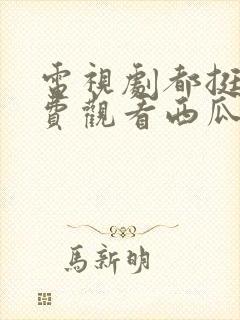 電視劇都挺
費觀看西瓜
馬新明